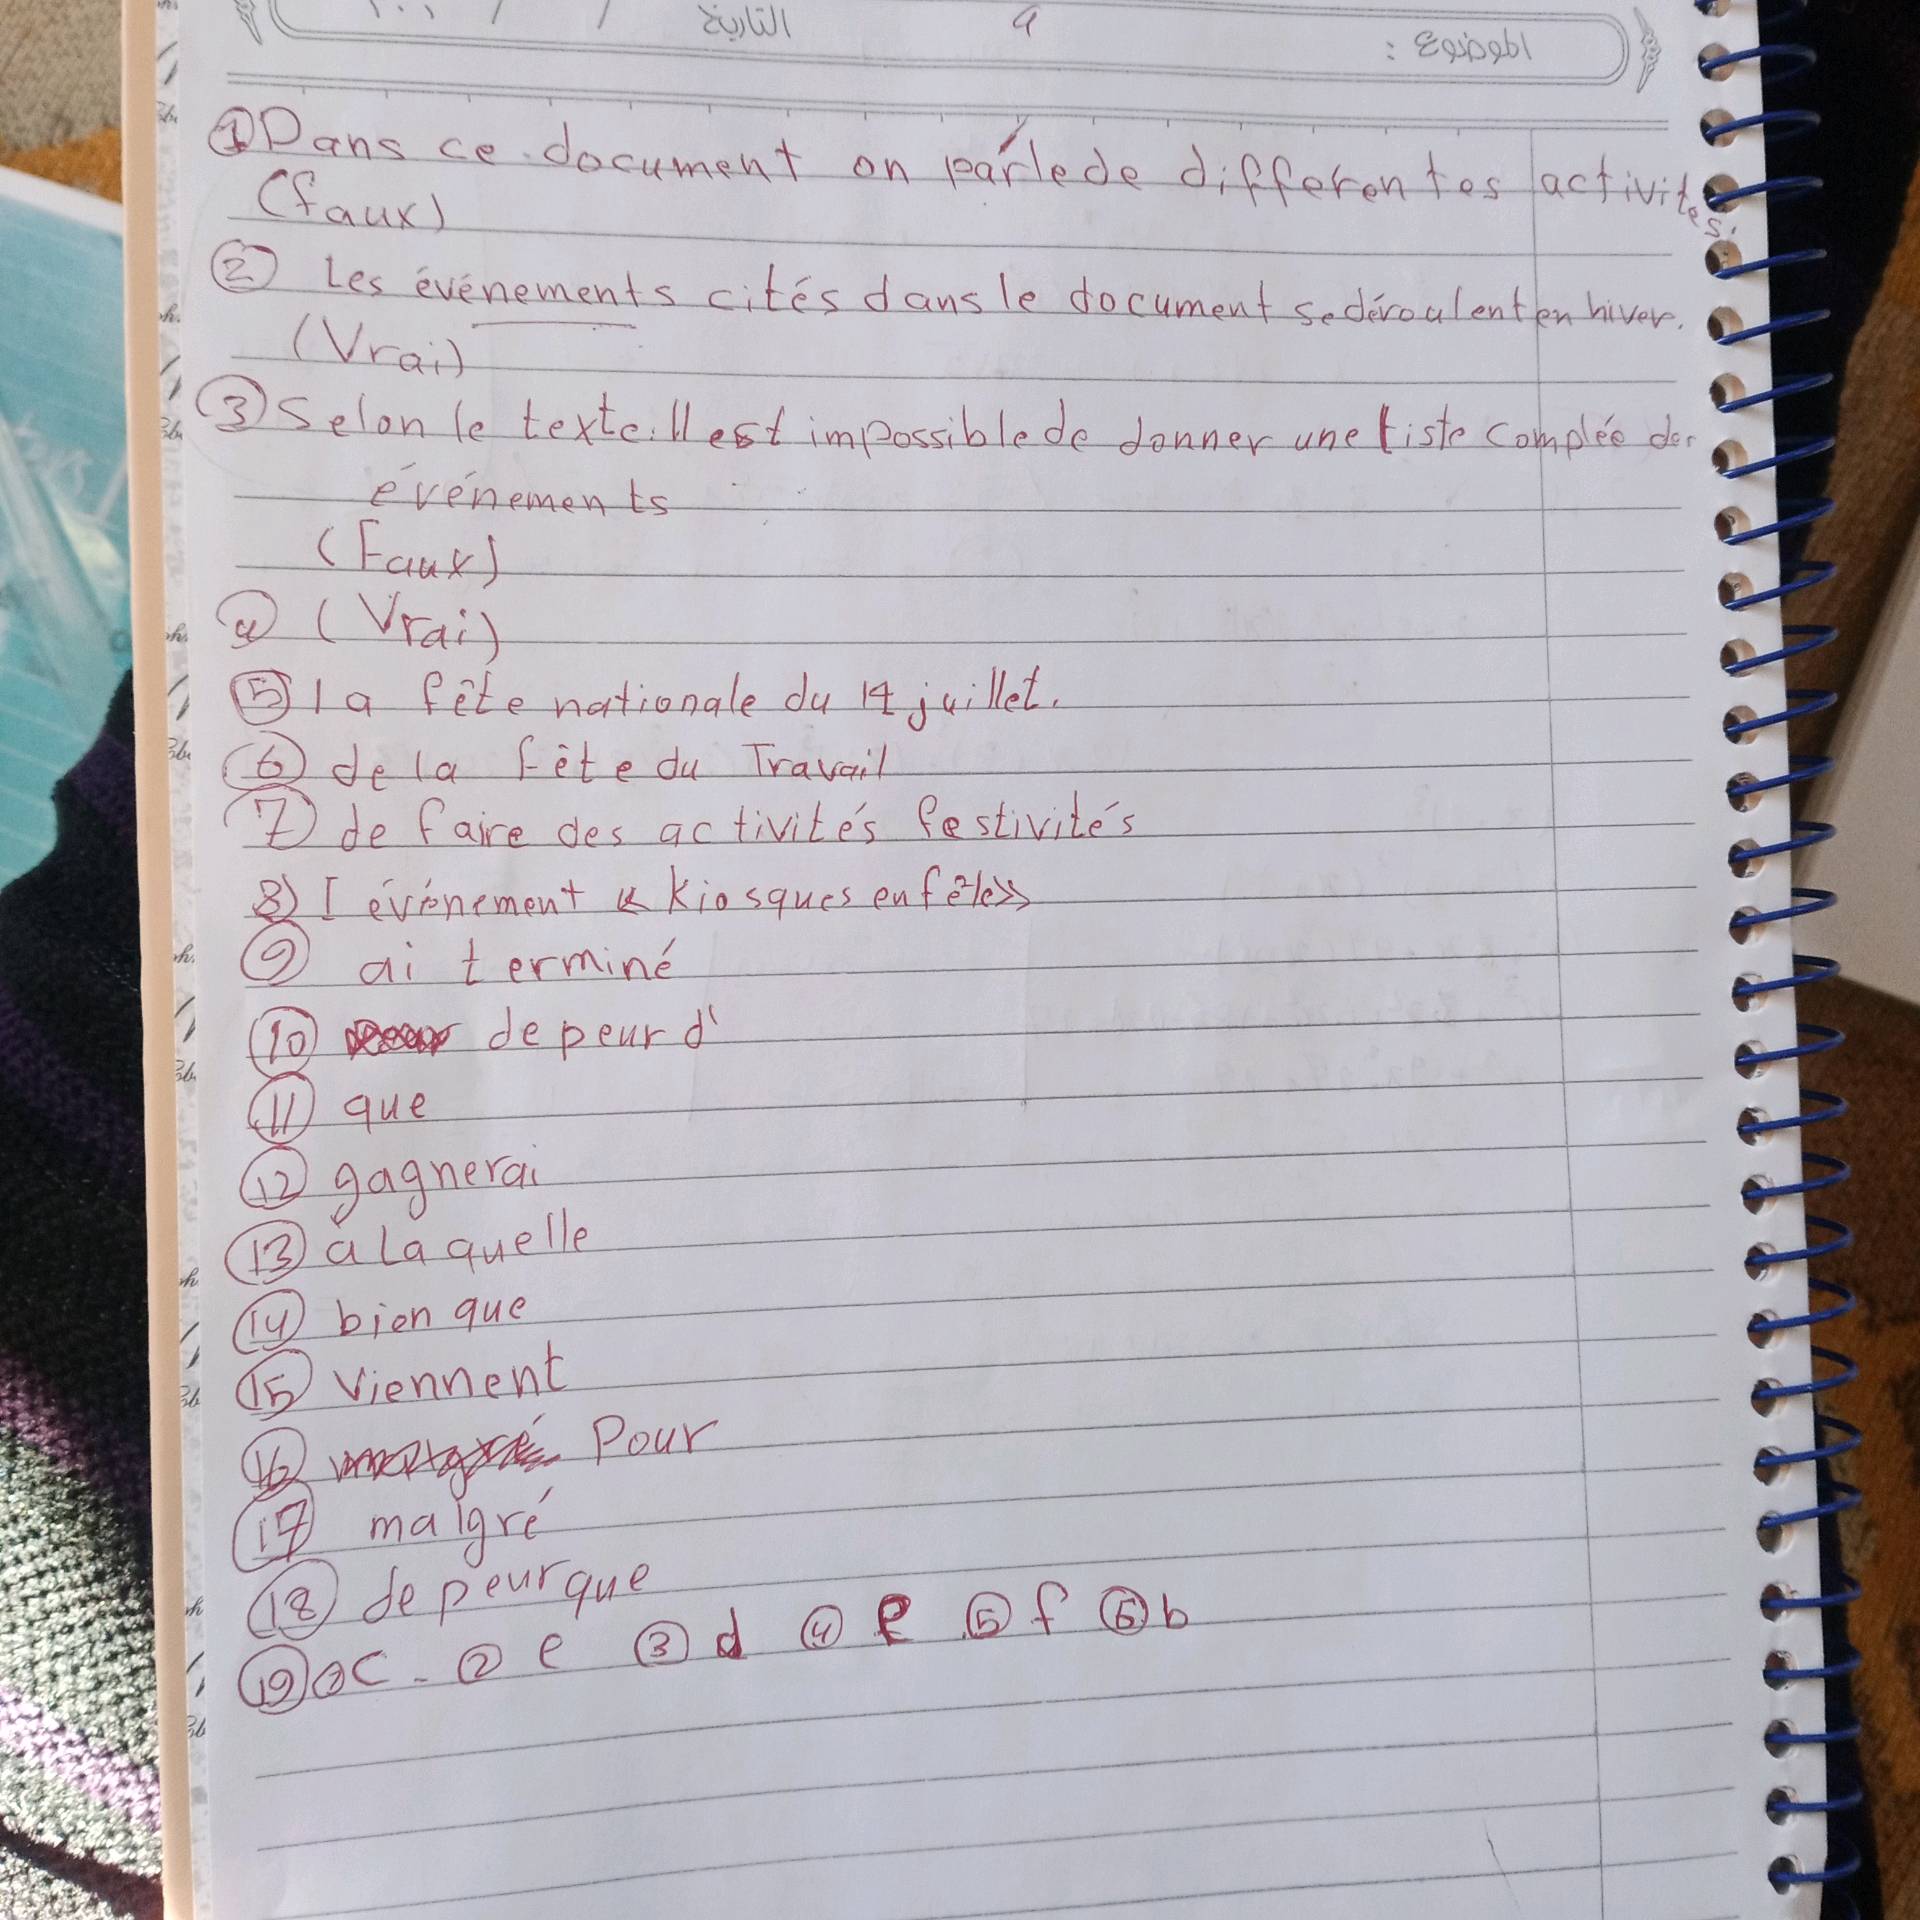 التاريخ / /
الموضوع :
① Dans ce document on parle de differentes activites.
(faux)
② Les événements cités dans le document se déroulent en hiver.
(Vrai)
③ Selon le texte. Il est impossible de donner une liste complée des
événements
(Faux)
④ (Vrai)
⑤ la fête nationale du 14 juillet.
⑥ de la fête du Travail
⑦ de faire des activités festivités
8) l événement « Kiosques en fête»
⑨ ai terminé
⑩ de peur d'
⑪ que
⑫ gagnerai
⑬ à laquelle
⑭ bien que
⑮ viennent
⑯ Pour
⑰ malgré
⑱ de peur que
⑲ c - ② e ③ d ④ e ⑤ f ⑥ b